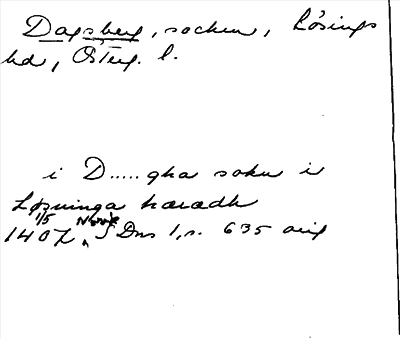 Dagsberg, socken, Lösings
hd, Österg. l.
i D.....gha sokn i
Løsuinga hæradh
1407 1/5 SDns 1, s. 635 orig